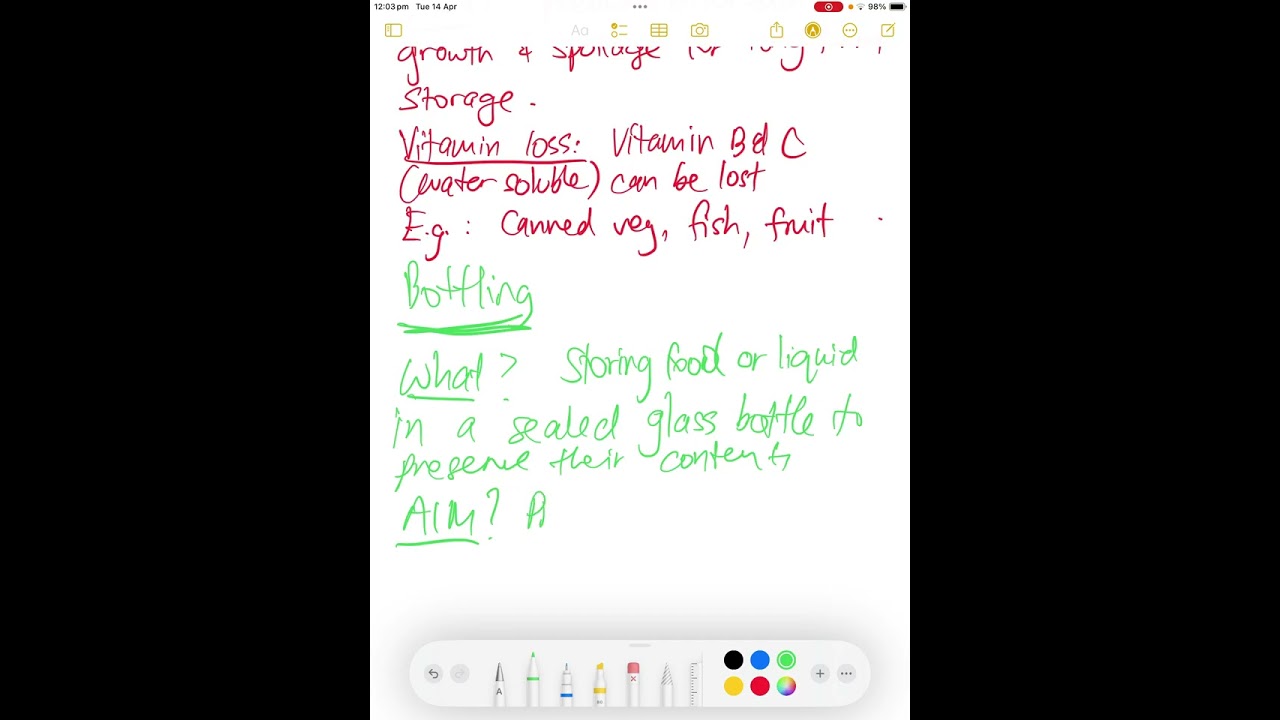 12:03 pm Tue 14 Apr 98%
Aa
growth & spoilage for long
storage.
Vitamin loss: Vitamin B & C
(water soluble) can be lost
E.g.: Canned veg, fish, fruit
Bottling
What? Storing food or liquid
in a sealed glass bottle to
preserve their contents
AIM? A
A
80